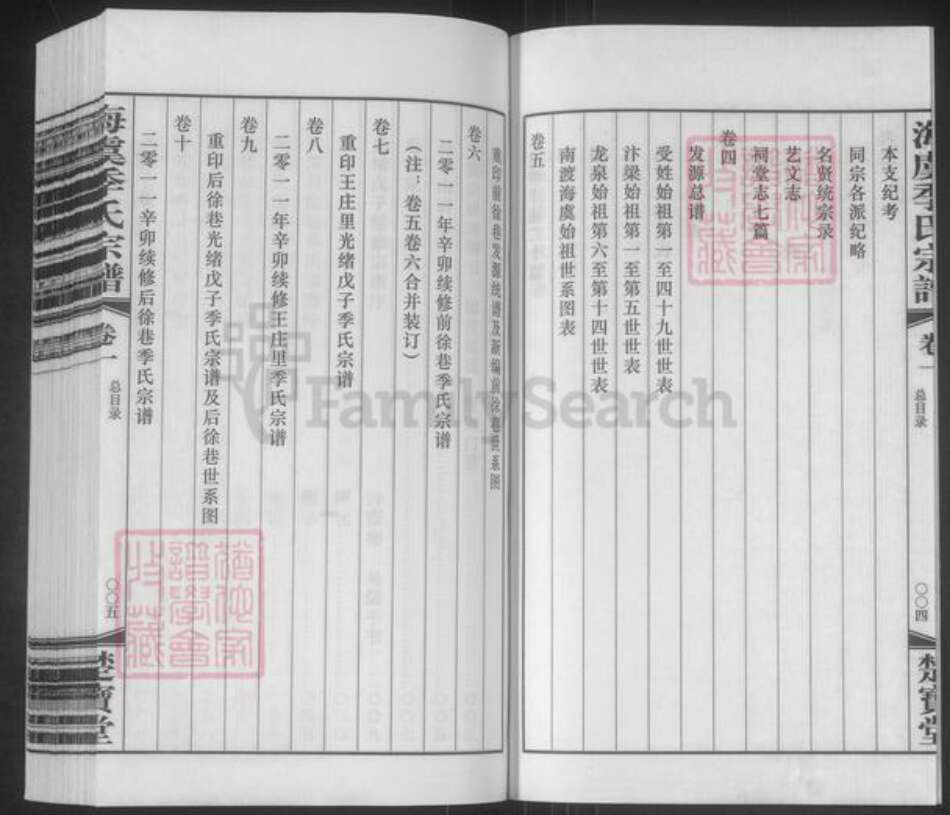 海虞季氏宗譜
卷一
总目录
〇〇四
楚寶堂
本支纪考
同宗各派纪略
名贤统宗录
艺文志
祠堂志七篇
卷四
发源总谱
受姓始祖第一至四十九世世表
汴梁始祖第一至第五世世表
龙泉始祖第六至第十四世世表
南渡海虞始祖世系图表
卷五
重印前徐巷发源统谱及新编前徐巷世系图
卷六
二零一一年辛卯续修前徐巷季氏宗谱
（注：卷五卷六合并装订）
卷七
重印王庄里光绪戊子季氏宗谱
卷八
二零一一年辛卯续修王庄里季氏宗谱
卷九
重印后徐巷光绪戊子季氏宗谱及后徐巷世系图
卷十
二零一一辛卯续修后徐巷季氏宗谱
海虞季氏宗譜
卷一
总目录
〇〇五
楚寶堂
FamilySearch
譜學會
收藏